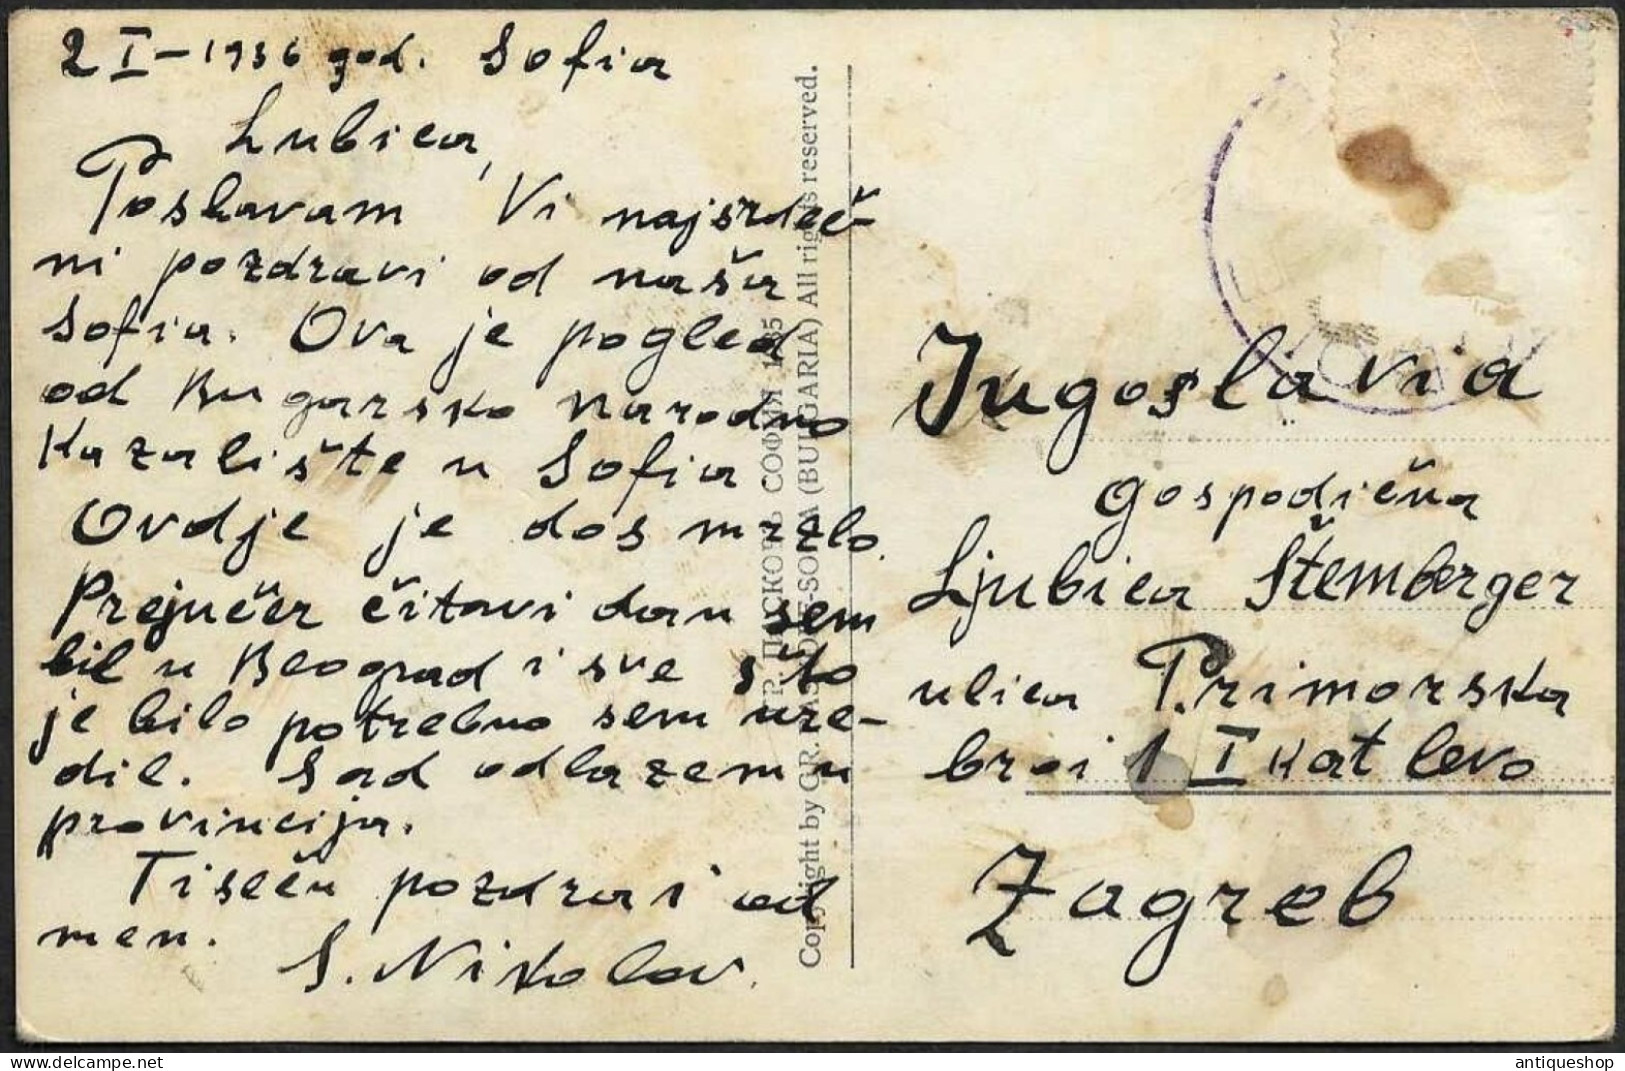 2 I – 1936 god. Sofia
Lubica,
Poslavam Vi najsrdeč-
ni pozdravi od naša
Sofia. Ova je pogled
od Bugarsko narodno
kazalište u Sofia
Ovdje je dos mrzlo.
Prejučer čitavi dan sem
bil u Beograd i sve što
je bilo potrebno sem ure-
dil. Sad odlazem u
provincija.
Tiseču pozdravi od
men.
S. Nikolov.
ГР. ПАСКОВЪ СОФИЯ 1935
Copyright by GR. PASKOFF-SOFIA (BULGARIA) All rights reserved.
Jugoslavia
Gospodična
Ljubica Štemberger
ulica Primorska
broi 1 I kat levo
Zagreb
antiqueshop